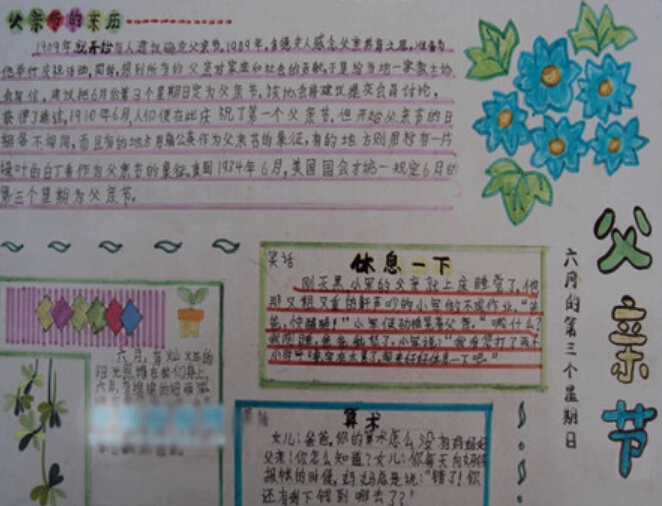 父亲节的来历
1909年就开始有人建议确定父亲节。1909年,有德夫人感念父亲养育之恩,准备为
他举行庆祝活动,同时,想到所有的父亲对家庭和社会的贡献,于是给当地一家教士协
会写信,建议把6月的第3个星期日定为父亲节。该协会将建议提交会员讨论,
获得了通过。1910年6月,人们便在此庆祝了第一个父亲节。但开始父亲节的日
期各不相同,而且有的地方用蒲公英作为父亲节的象征,有的地方则用衬有一片
绿叶的白丁香作为父亲节的象征。直到1934年6月,美国国会才统一规定6月的
第三个星期为父亲节。
父亲节
六月的第三个星期日
笑话
休息一下
刚天黑,小军的父亲就上床睡觉了,他
那又粗又重的鼾声吵的小军做不成作业。"爸
爸,你醒醒!"小军使劲推
父亲。"做什么?
小军说:
休息一下吧。"
六月,有灿烂的
阳光照
在我们身上,
六月,有
笑话
算术
女儿:爸爸,你的算术怎么没有妈妈好
父亲:你怎么知道?女儿:你每天向妈妈
报帐的时候,妈妈总是说:"错了!你
还有剩下钱到哪去了?"